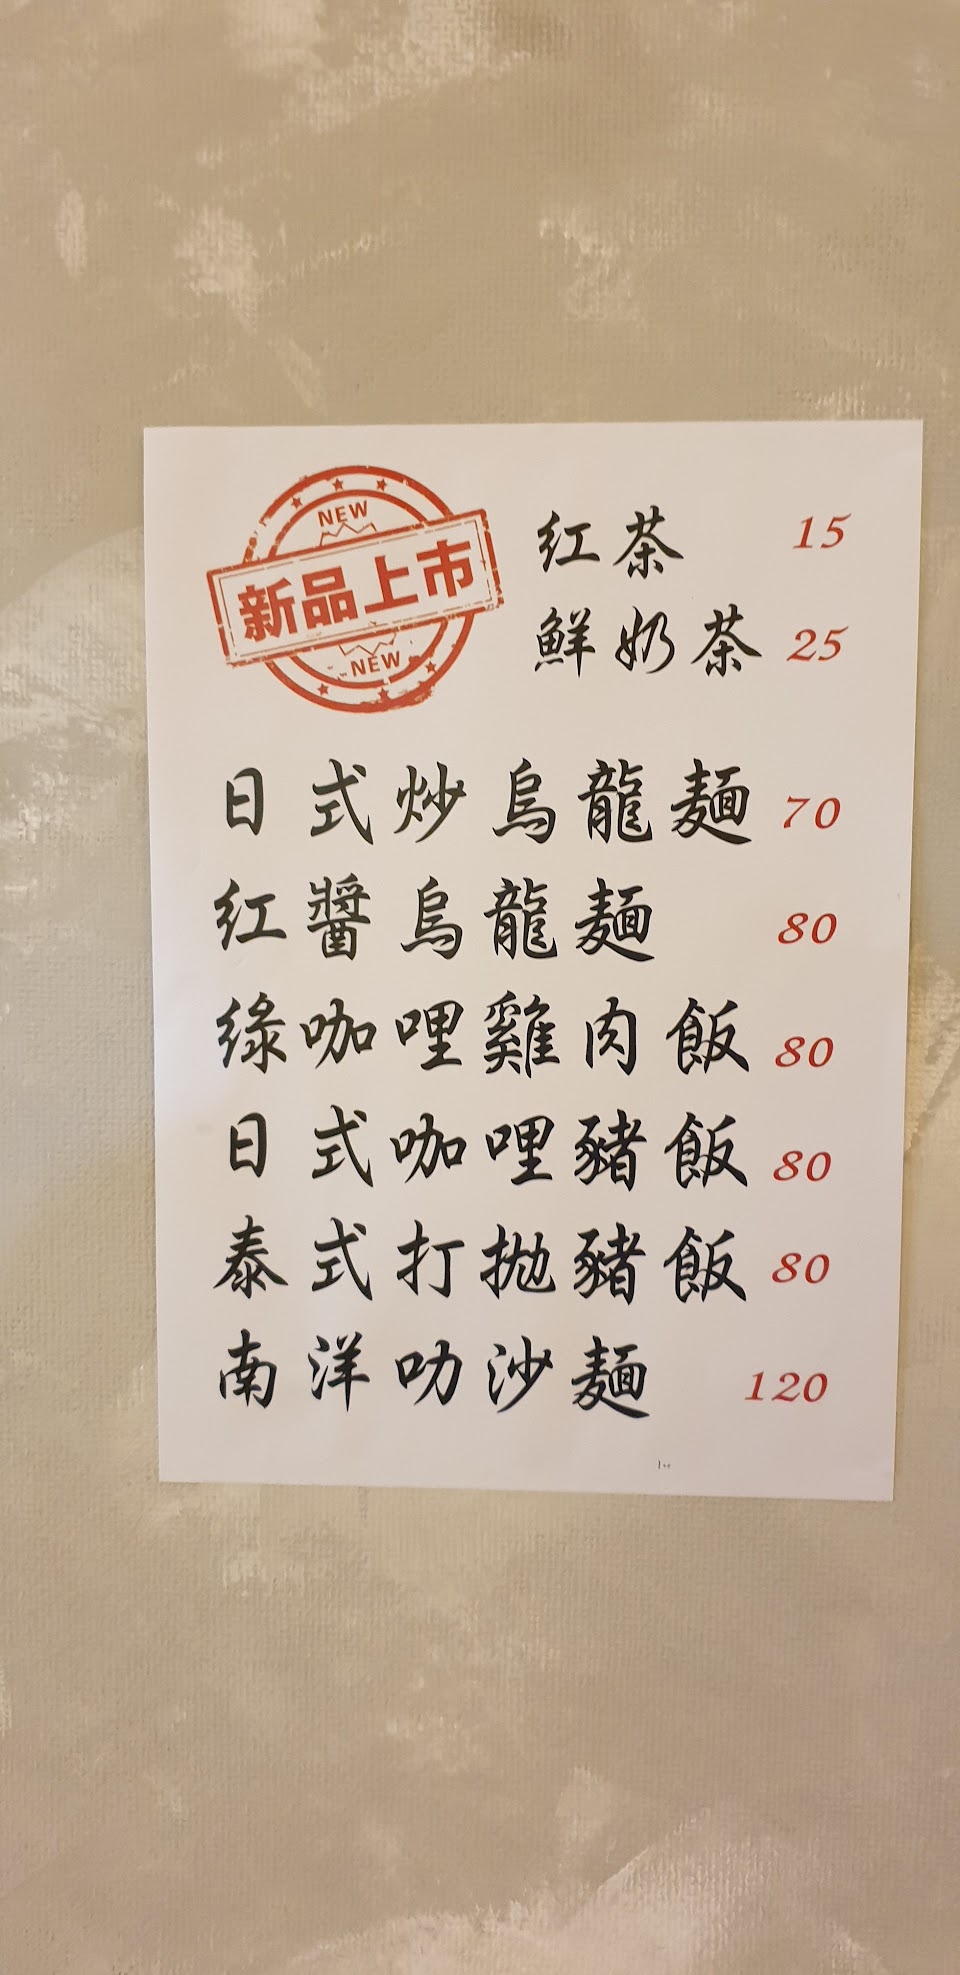 NEW
新品上市
NEW
紅茶 15
鮮奶茶 25
日式炒烏龍麵 70
紅醬烏龍麵 80
綠咖哩雞肉飯 80
日式咖哩豬飯 80
泰式打拋豬飯 80
南洋叻沙麵 120